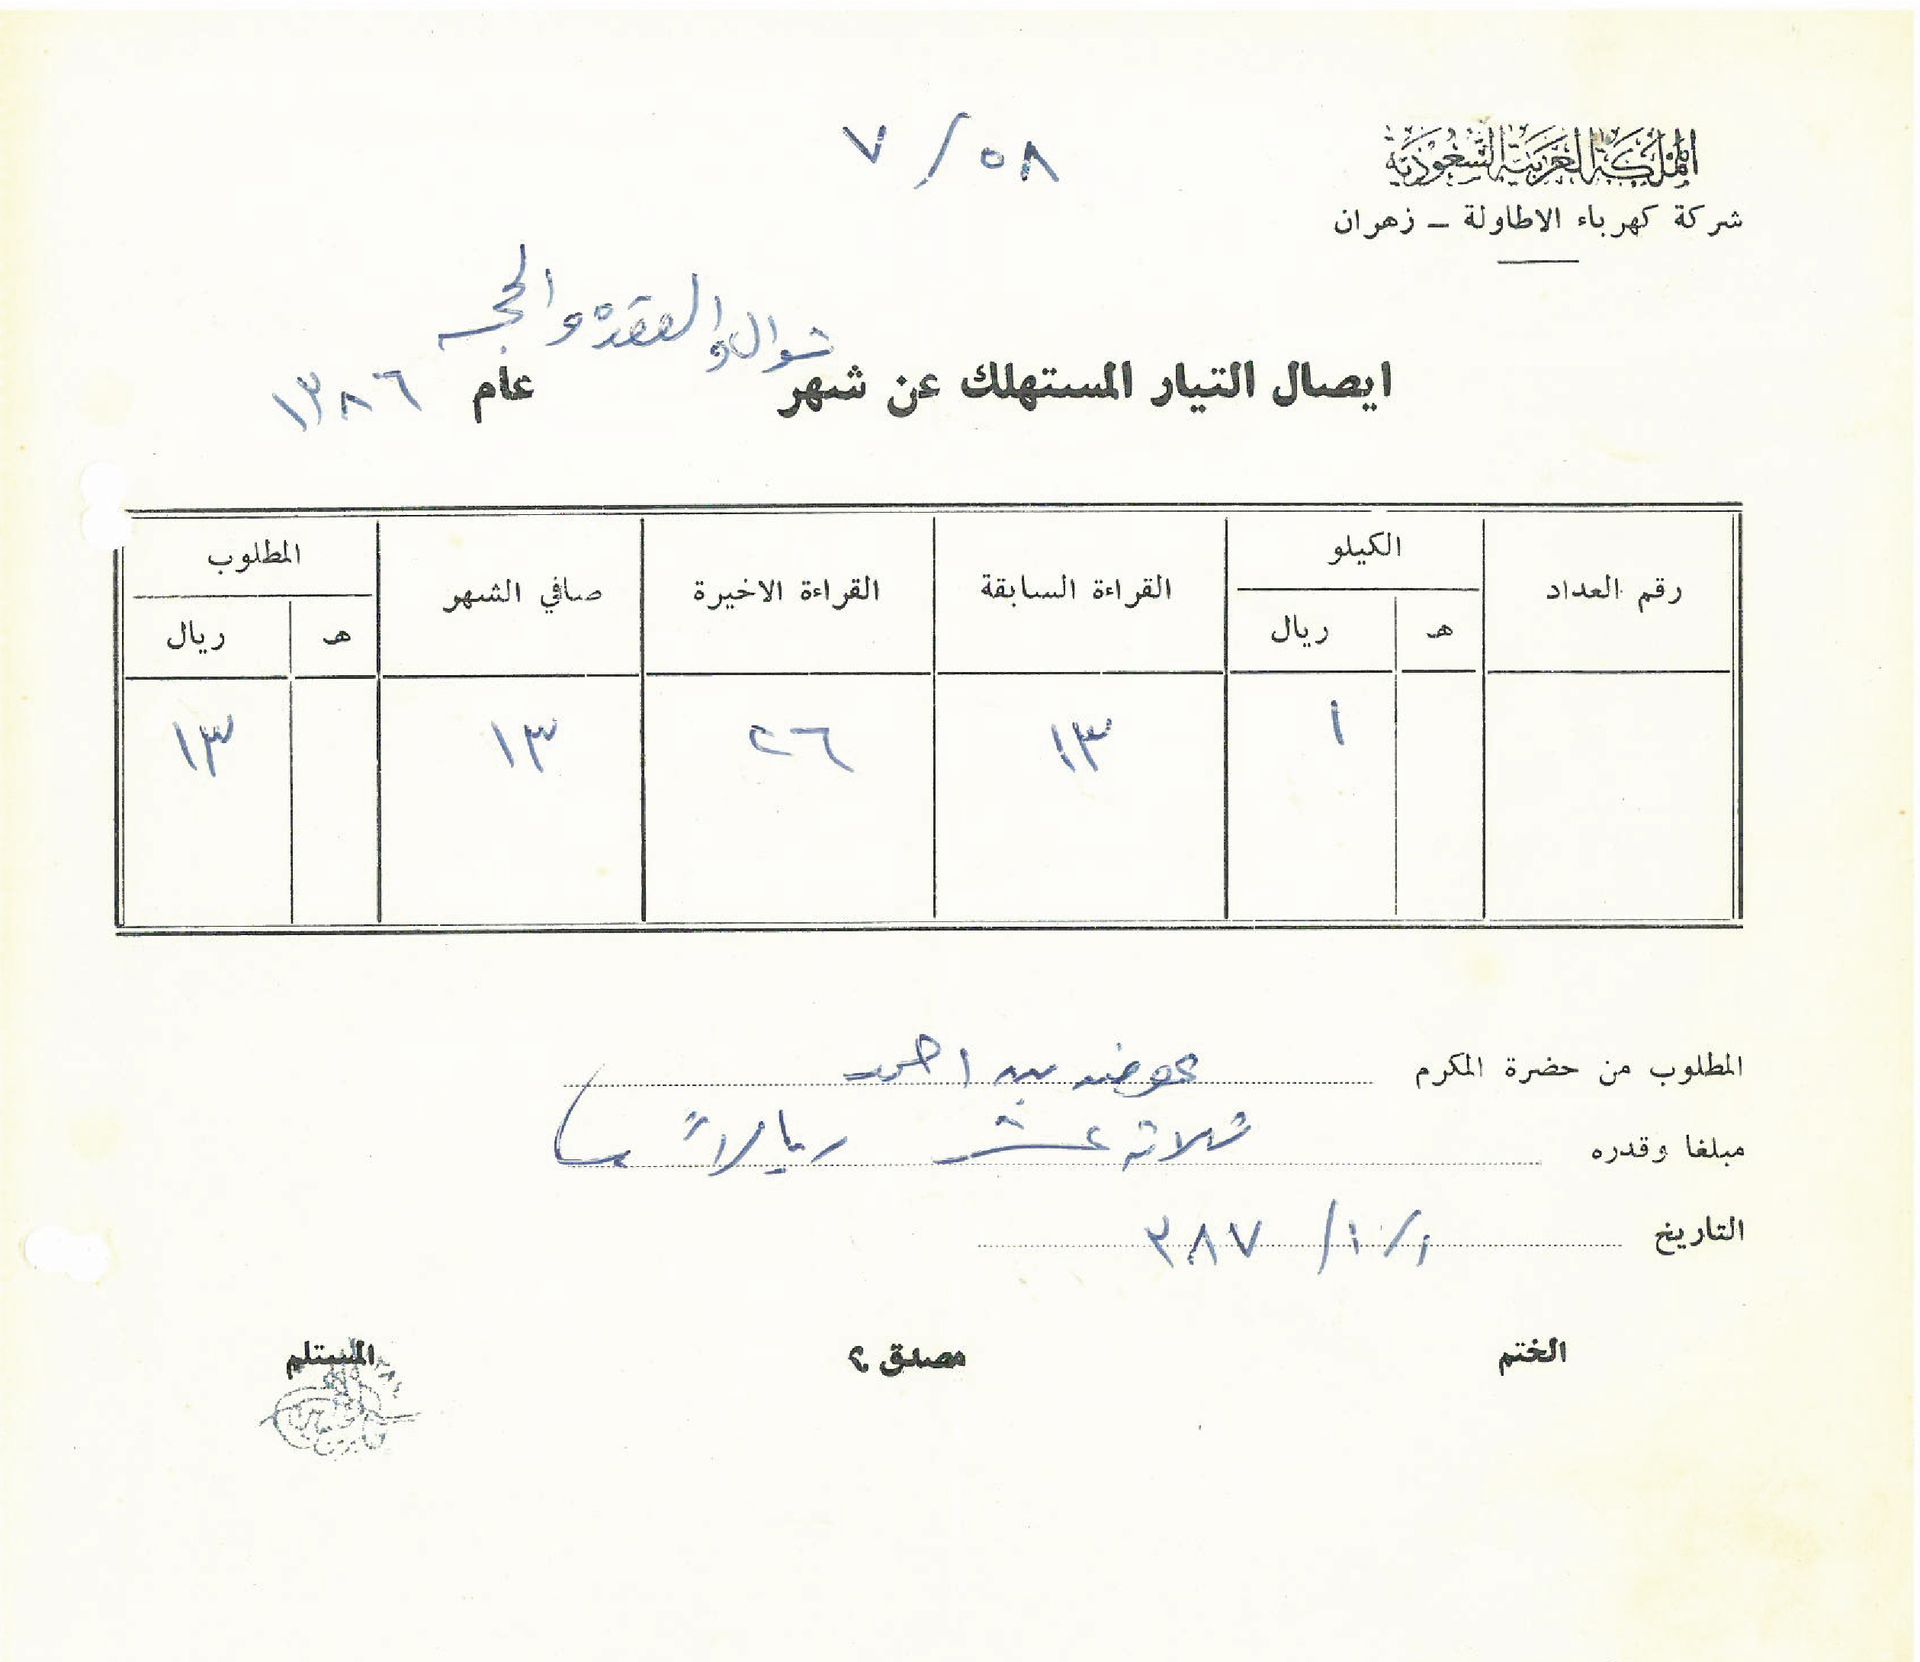 المملكة العربية السعودية
شركة كهرباء الاطاولة – زهران
٧/٥٨
شوال والقعده والحجه
ايصال التيار المستهلك عن شهر عام ١٣٨٦
رقم العداد الكيلو القراءة السابقة القراءة الاخيرة صافي الشهر المطلوب
هـ ريال هـ ريال
١ ١٣ ٢٦ ١٣ ١٣
المطلوب من حضرة المكرم عوضه بن احمد
مبلغا وقدره ثلاثة عشر ريالاً
التاريخ ١/١/٣٨٧
الختم مصدق ٢ المستلم